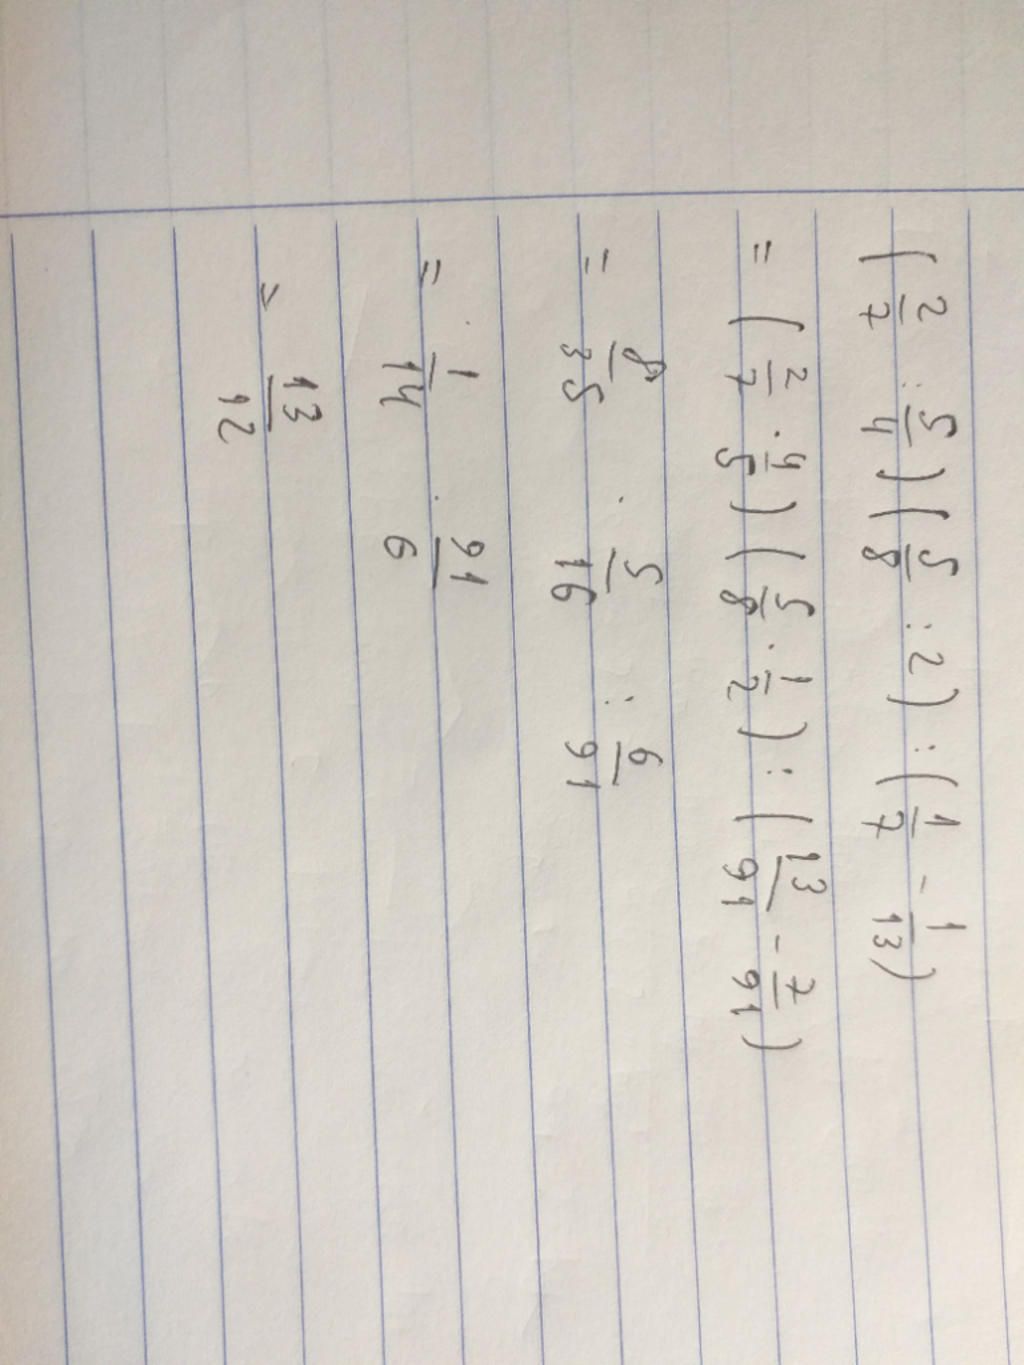 (2/7 : 5/4)(5/8 : 2) : (1/7 - 1/13)
= (2/7 · 4/5)(5/8 · 1/2) : (13/91 - 7/91)
= 8/35 · 5/16 : 6/91
= 1/14 · 91/6
= 13/12